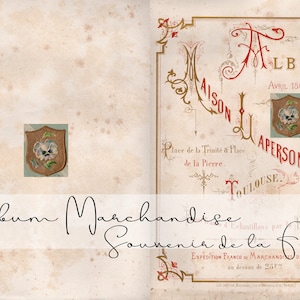 ALB
AVRIL 18
MAISON LAPERSON
Place de la Trinité & Place
de la Pierre
TOULOUSE
Echantillons par
EXPÉDITION FRANCO DE MARCHANDIS
au dessus de 25
lbum Marchandise
Souvenir de la